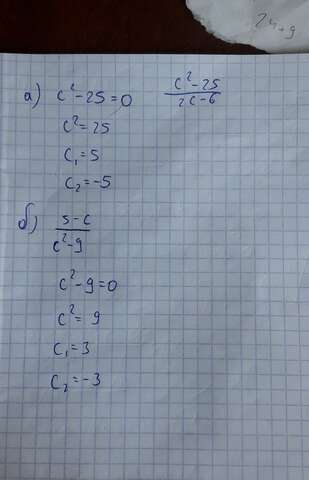 24+9
а) c²-25=0 (c²-25)/(2c-6)
c²=25
c₁=5
c₂=-5
б) (5-c)/(c²-9)
c²-9=0
c²=9
c₁=3
c₂=-3